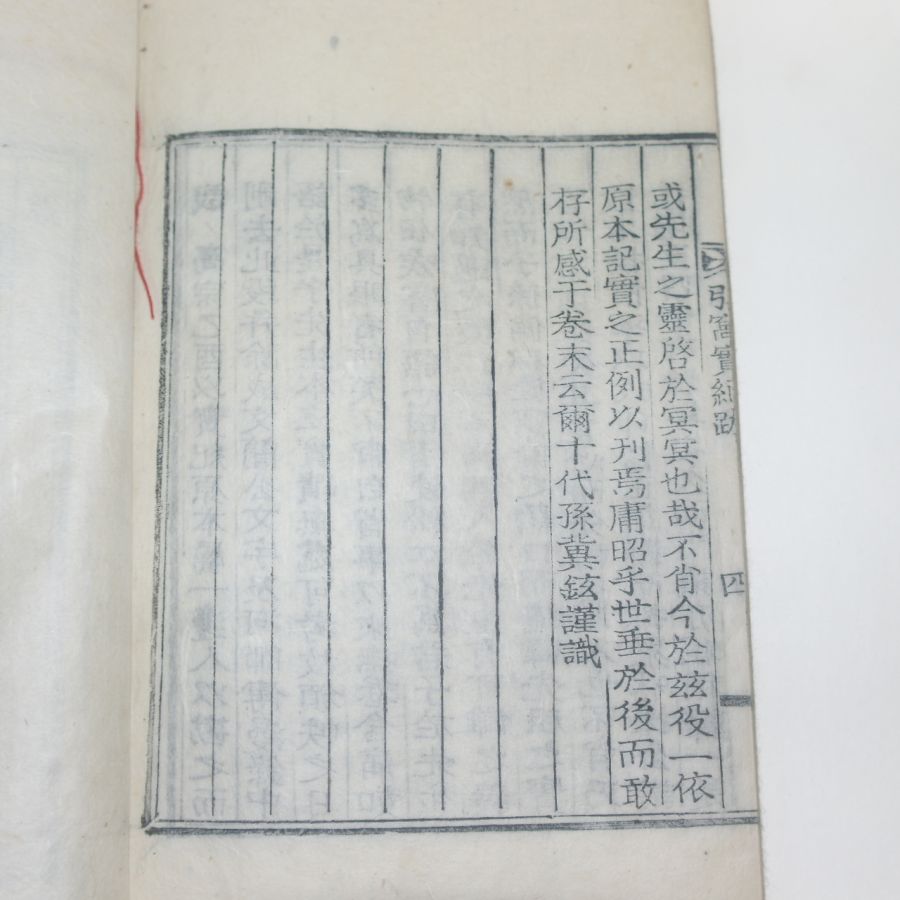 弘窩實紀跋
四
或先生之靈啓於冥冥也哉不肖今於玆役一依
原本記實之正例以刊焉庸昭乎世垂於後而敢
存所感于卷末云爾十代孫冀鉉謹識